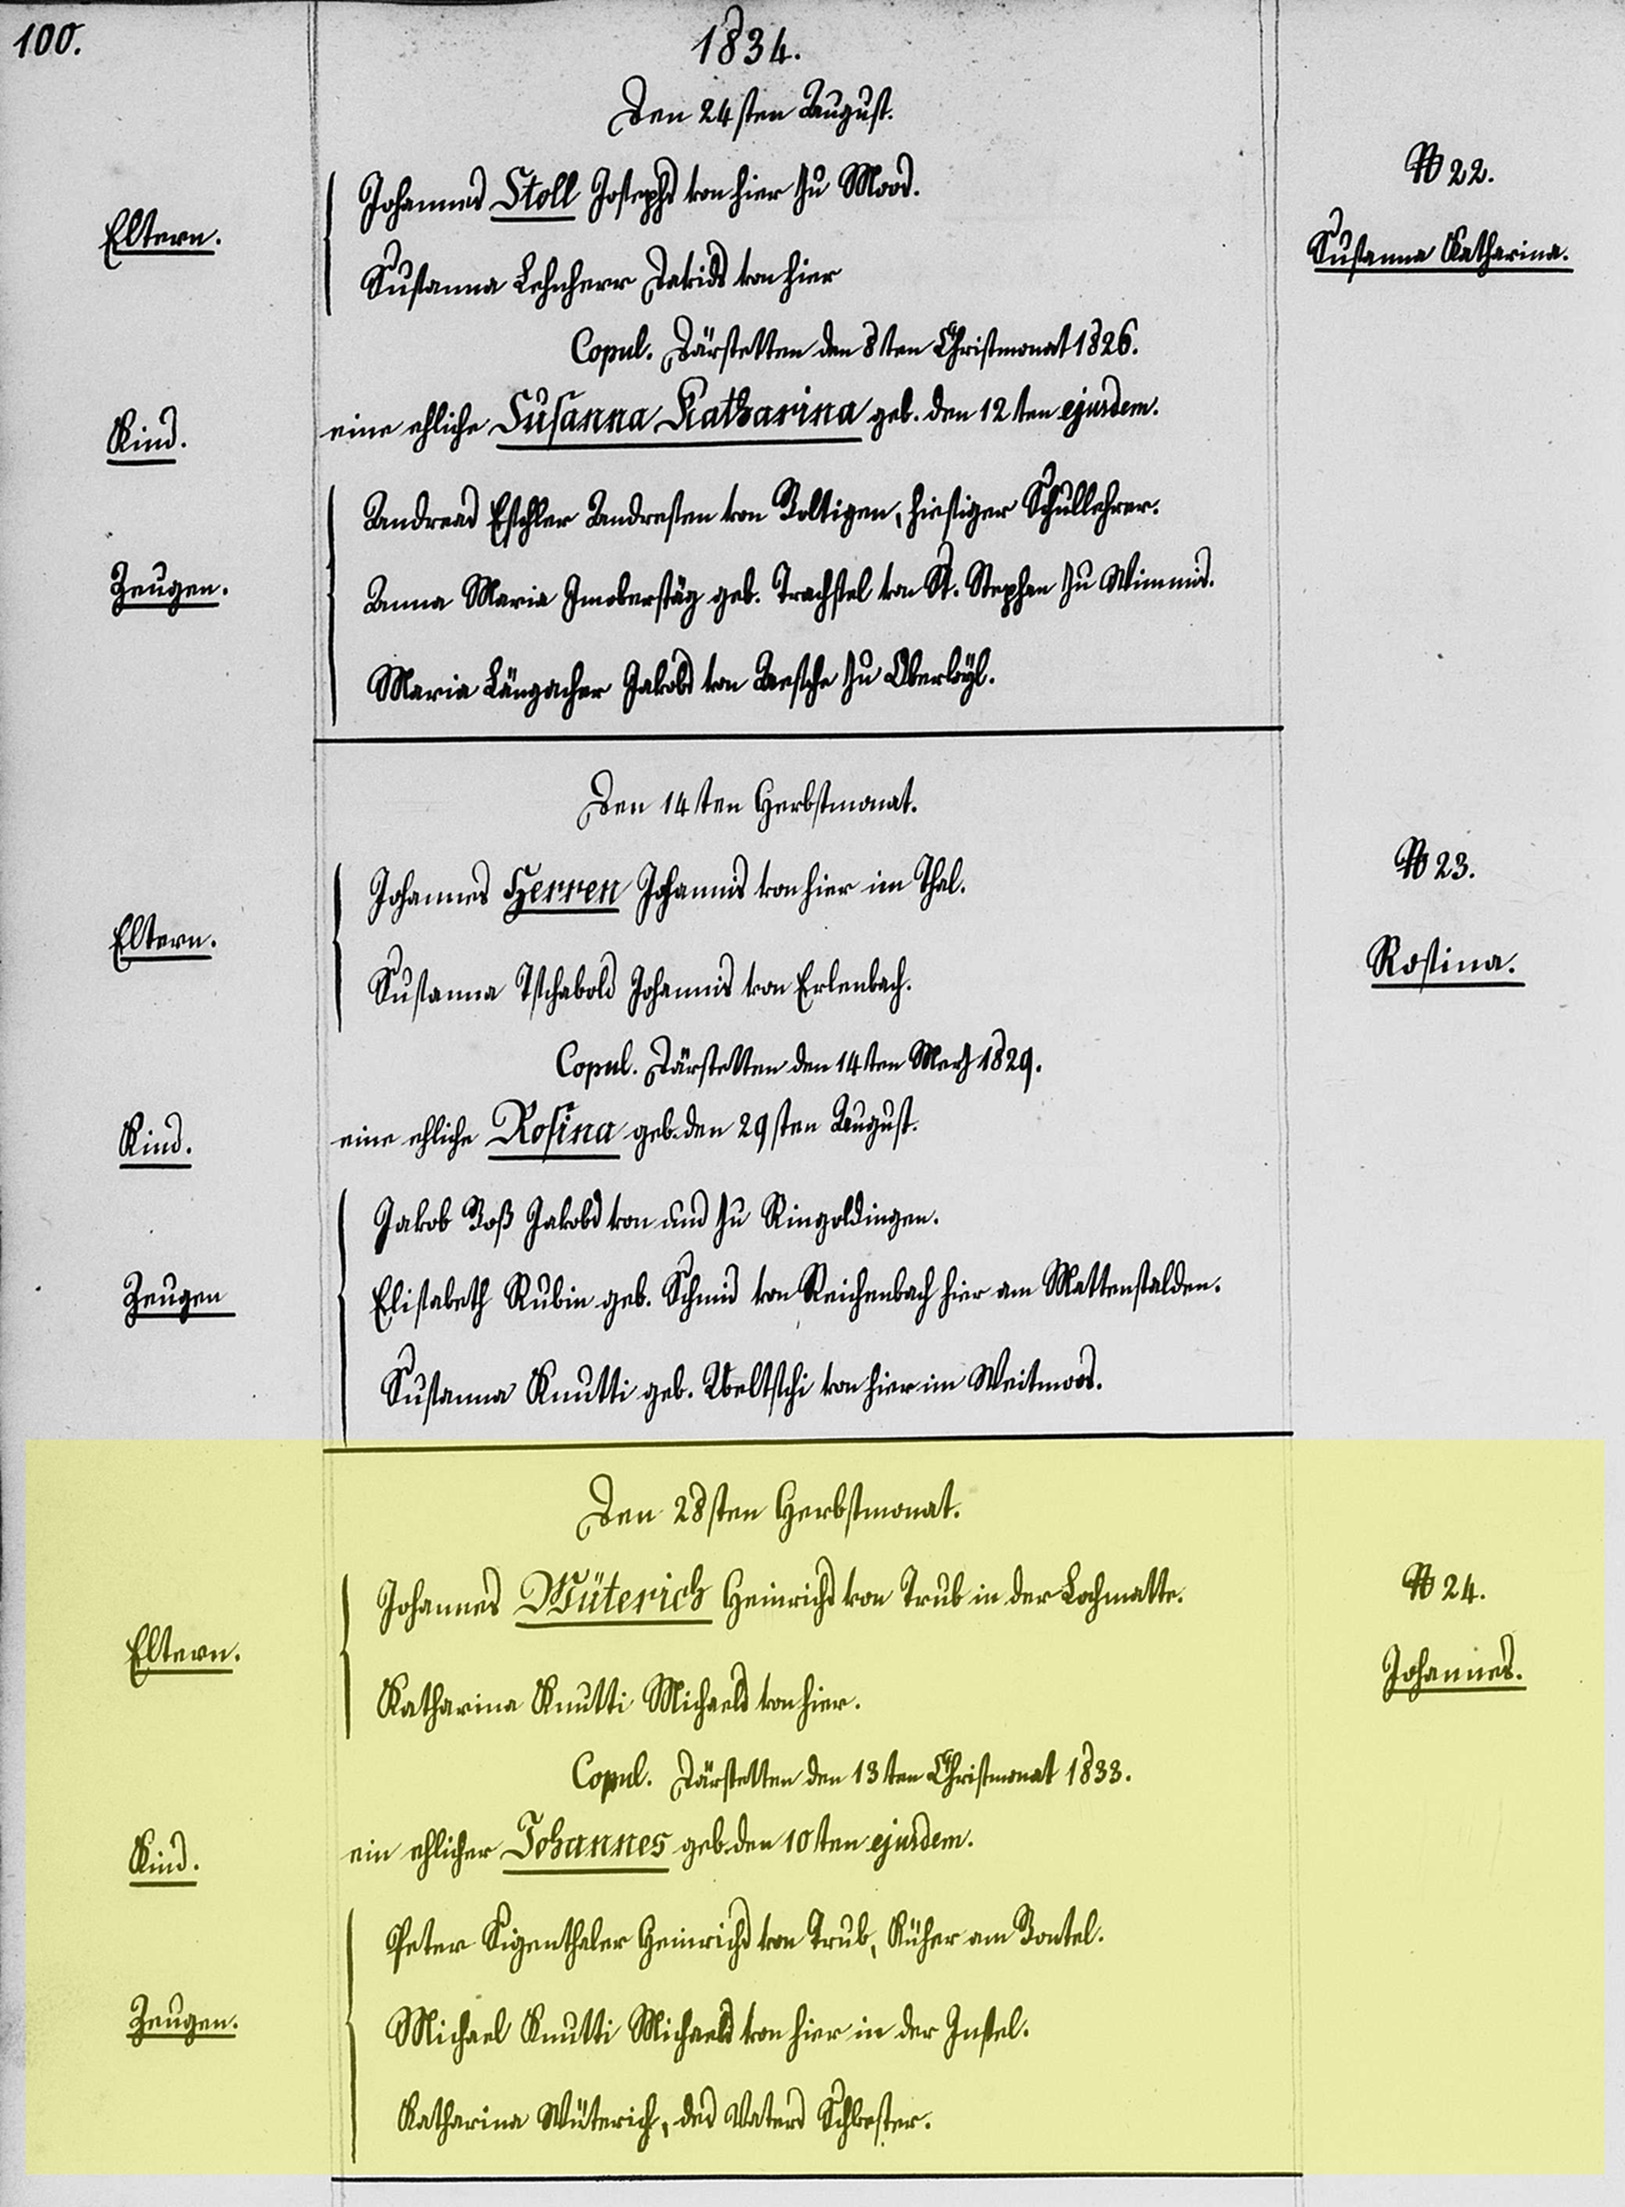 100.
1834.
Den 24sten August.
N 22.
Susanna Katharina.
Eltern.
Johannes Stoll Josephs von hier zu Moos.
Susanna Lehnherr Davids von hier
Copul. Därstetten den 8ten Christmonat 1826.
Kind.
eine ehliche Susanna Katharina geb. den 12ten ejusdem.
Zeugen.
Andreas Eschler Andresen von Boltigen, hiesiger Schullehrer.
Anna Maria Imobersteg geb. Trachsel von St. Stephan zu Wimmis.
Maria Längacher Jakobs von Aesche zu Oberwyl.
Den 14ten Herbstmonat.
N 23.
Rosina.
Eltern.
Johannes Herren Johannis von hier im Thal.
Susanna Tschabold Johannis von Erlenbach.
Copul. Därstetten den 14ten Merz 1829.
Kind.
eine ehliche Rosina geb. den 29sten August.
Zeugen
Jakob Boß Jakobs von und zu Ringoldingen.
Elisabeth Rubin geb. Schmid von Reichenbach hier am Mattenstalden.
Susanna Knutti geb. Ueltschi von hier im Weitmoos.
Den 28sten Herbstmonat.
N 24.
Johannes.
Eltern.
Johannes Wüterich Heinrichs von Trub in der Lochmatte.
Katharina Knutti Michaels von hier.
Copul. Därstetten den 13ten Christmonat 1833.
Kind.
ein ehlicher Johannes geb. den 10ten ejusdem.
Zeugen.
Peter Sigenthaler Heinrichs von Trub, Küher am Bontel.
Michael Knutti Michaels von hier in der Insel.
Katharina Wüterich, des Vaters Schwester.